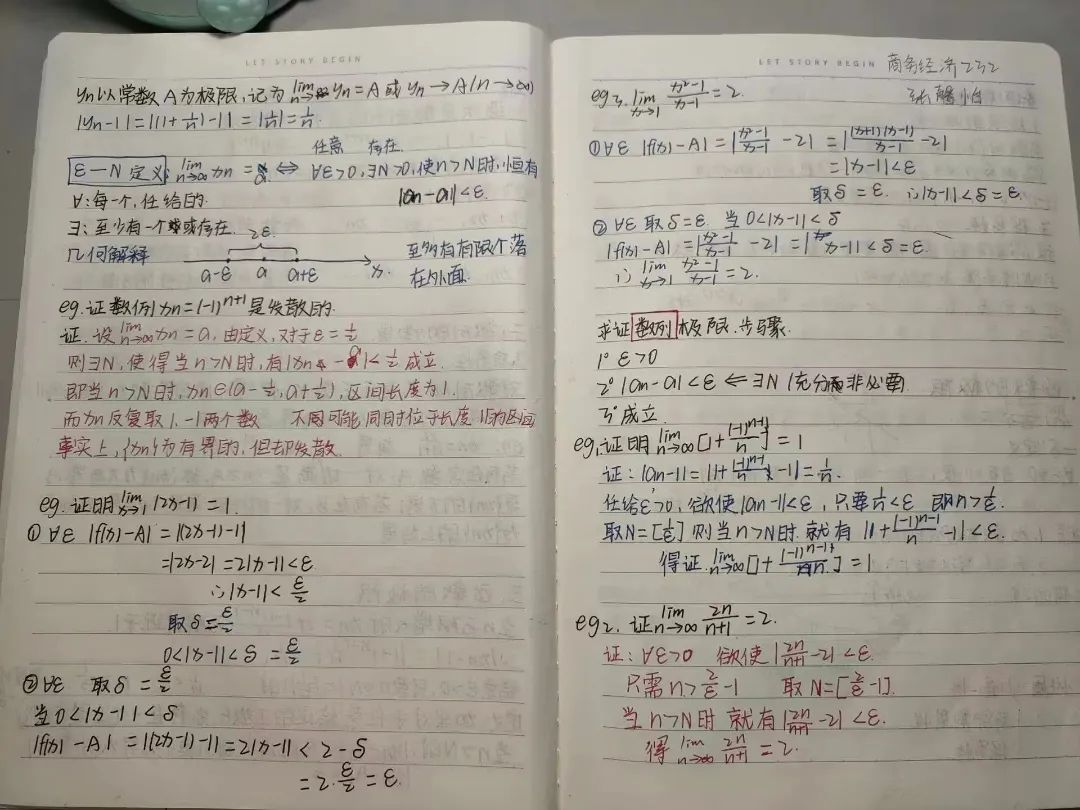 LET STORY BEGIN
yn以常数A为极限,记为 lim n→∞ yn = A 或 yn → A(n→∞)
|yn-1| = |(1+1/n)-1| = |1/n| = 1/n.
任意 存在
ε-N 定义: lim n→∞ xn = a ⇔ ∀ε>0,∃N>0,使n>N时,恒有
∀:每一个,任给的. |an-a|<ε.
∃:至少有一个或存在. 2ε
几何解释 a-ε a a+ε x. 至多有有限个落
在外面.
eg.证数列 xn=(-1)ⁿ⁺¹是发散的.
证.设 lim n→∞ xn = a,由定义,对于ε=1/2
则∃N,使得当n>N时,有|xn-a|<1/2 成立.
即当n>N时,xn∈(a-1/2,a+1/2),区间长度为1.
而xn反复取1,-1两个数 不可能同时位于长度1的区间
事实上,{xn}为有界的,但却发散.
eg.证明 lim x→1 (2x-1)=1.
①∀ε |f(x)-A|=|(2x-1)-1|
=|2x-2|=2|x-1|<ε.
∴|x-1|<ε/2
取δ=ε/2
0<|x-1|<δ=ε/2
②∀ε 取δ=ε/2
当0<|x-1|<δ
|f(x)-A|=|(2x-1)-1|=2|x-1|<2-δ
=2·ε/2=ε.
LET STORY BEGIN 商务经济2232
eg3. lim x→1 x²-1/x-1 =2.
①∀ε |f(x)-A|=|x²-1/x-1 -2|=|(x+1)(x-1)/x-1 -2|
=|x-1|<ε
取δ=ε. ∴|x-1|<δ=ε.
②∀ε 取δ=ε. 当0<|x-1|<δ
|f(x)-A|=|x²-1/x-1 -2|=|x-1|<δ=ε
∴ lim x→1 x²-1/x-1 =2.
求证数列极限.步骤.
1° ε>0
2° |an-a|<ε ⇐ ∃N (充分而非必要.
3° 成立.
eg1.证明 lim n→∞ [1+(-1)ⁿ⁻¹/n]=1
证:|an-1|=|1+(-1)ⁿ⁻¹/n-1|=1/n.
任给ε>0,欲使|an-1|<ε,只要1/n<ε 即n>1/ε.
取N=[1/ε] 则当n>N时.就有|1+(-1)ⁿ⁻¹/n-1|<ε.
得证. lim n→∞ [1+(-1)ⁿ⁻¹/n]=1
eg2. 证 lim n→∞ 2n/n+1 =2.
证:∀ε>0 欲使|2n/n+1 -2|<ε.
只需n>2/ε-1 取N=[2/ε-1].
当n>N时 就有|2n/n+1 -2|<ε.
得 lim n→∞ 2n/n+1 =2.